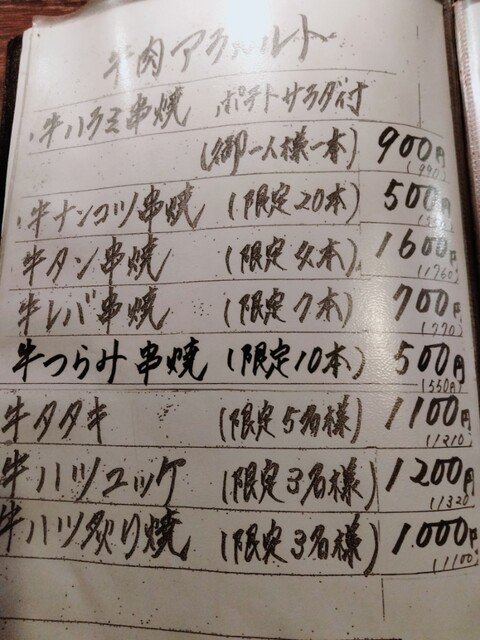 牛肉アラカルト
牛ハラミ串焼 ポテトサラダ付
(御一人様一本) 900円
(990)
牛ナンコツ串焼 (限定20本) 500円
牛タン串焼 (限定 本) 1600円
(1760)
牛レバ串焼 (限定7本) 700円
(770)
牛つらみ串焼 (限定10本) 500円
(550円)
牛タタキ (限定5名様) 1100円
(1210)
牛ハツユッケ (限定3名様) 1200円
(1320)
牛ハツ炙り焼 (限定3名様) 1000円
(1100)